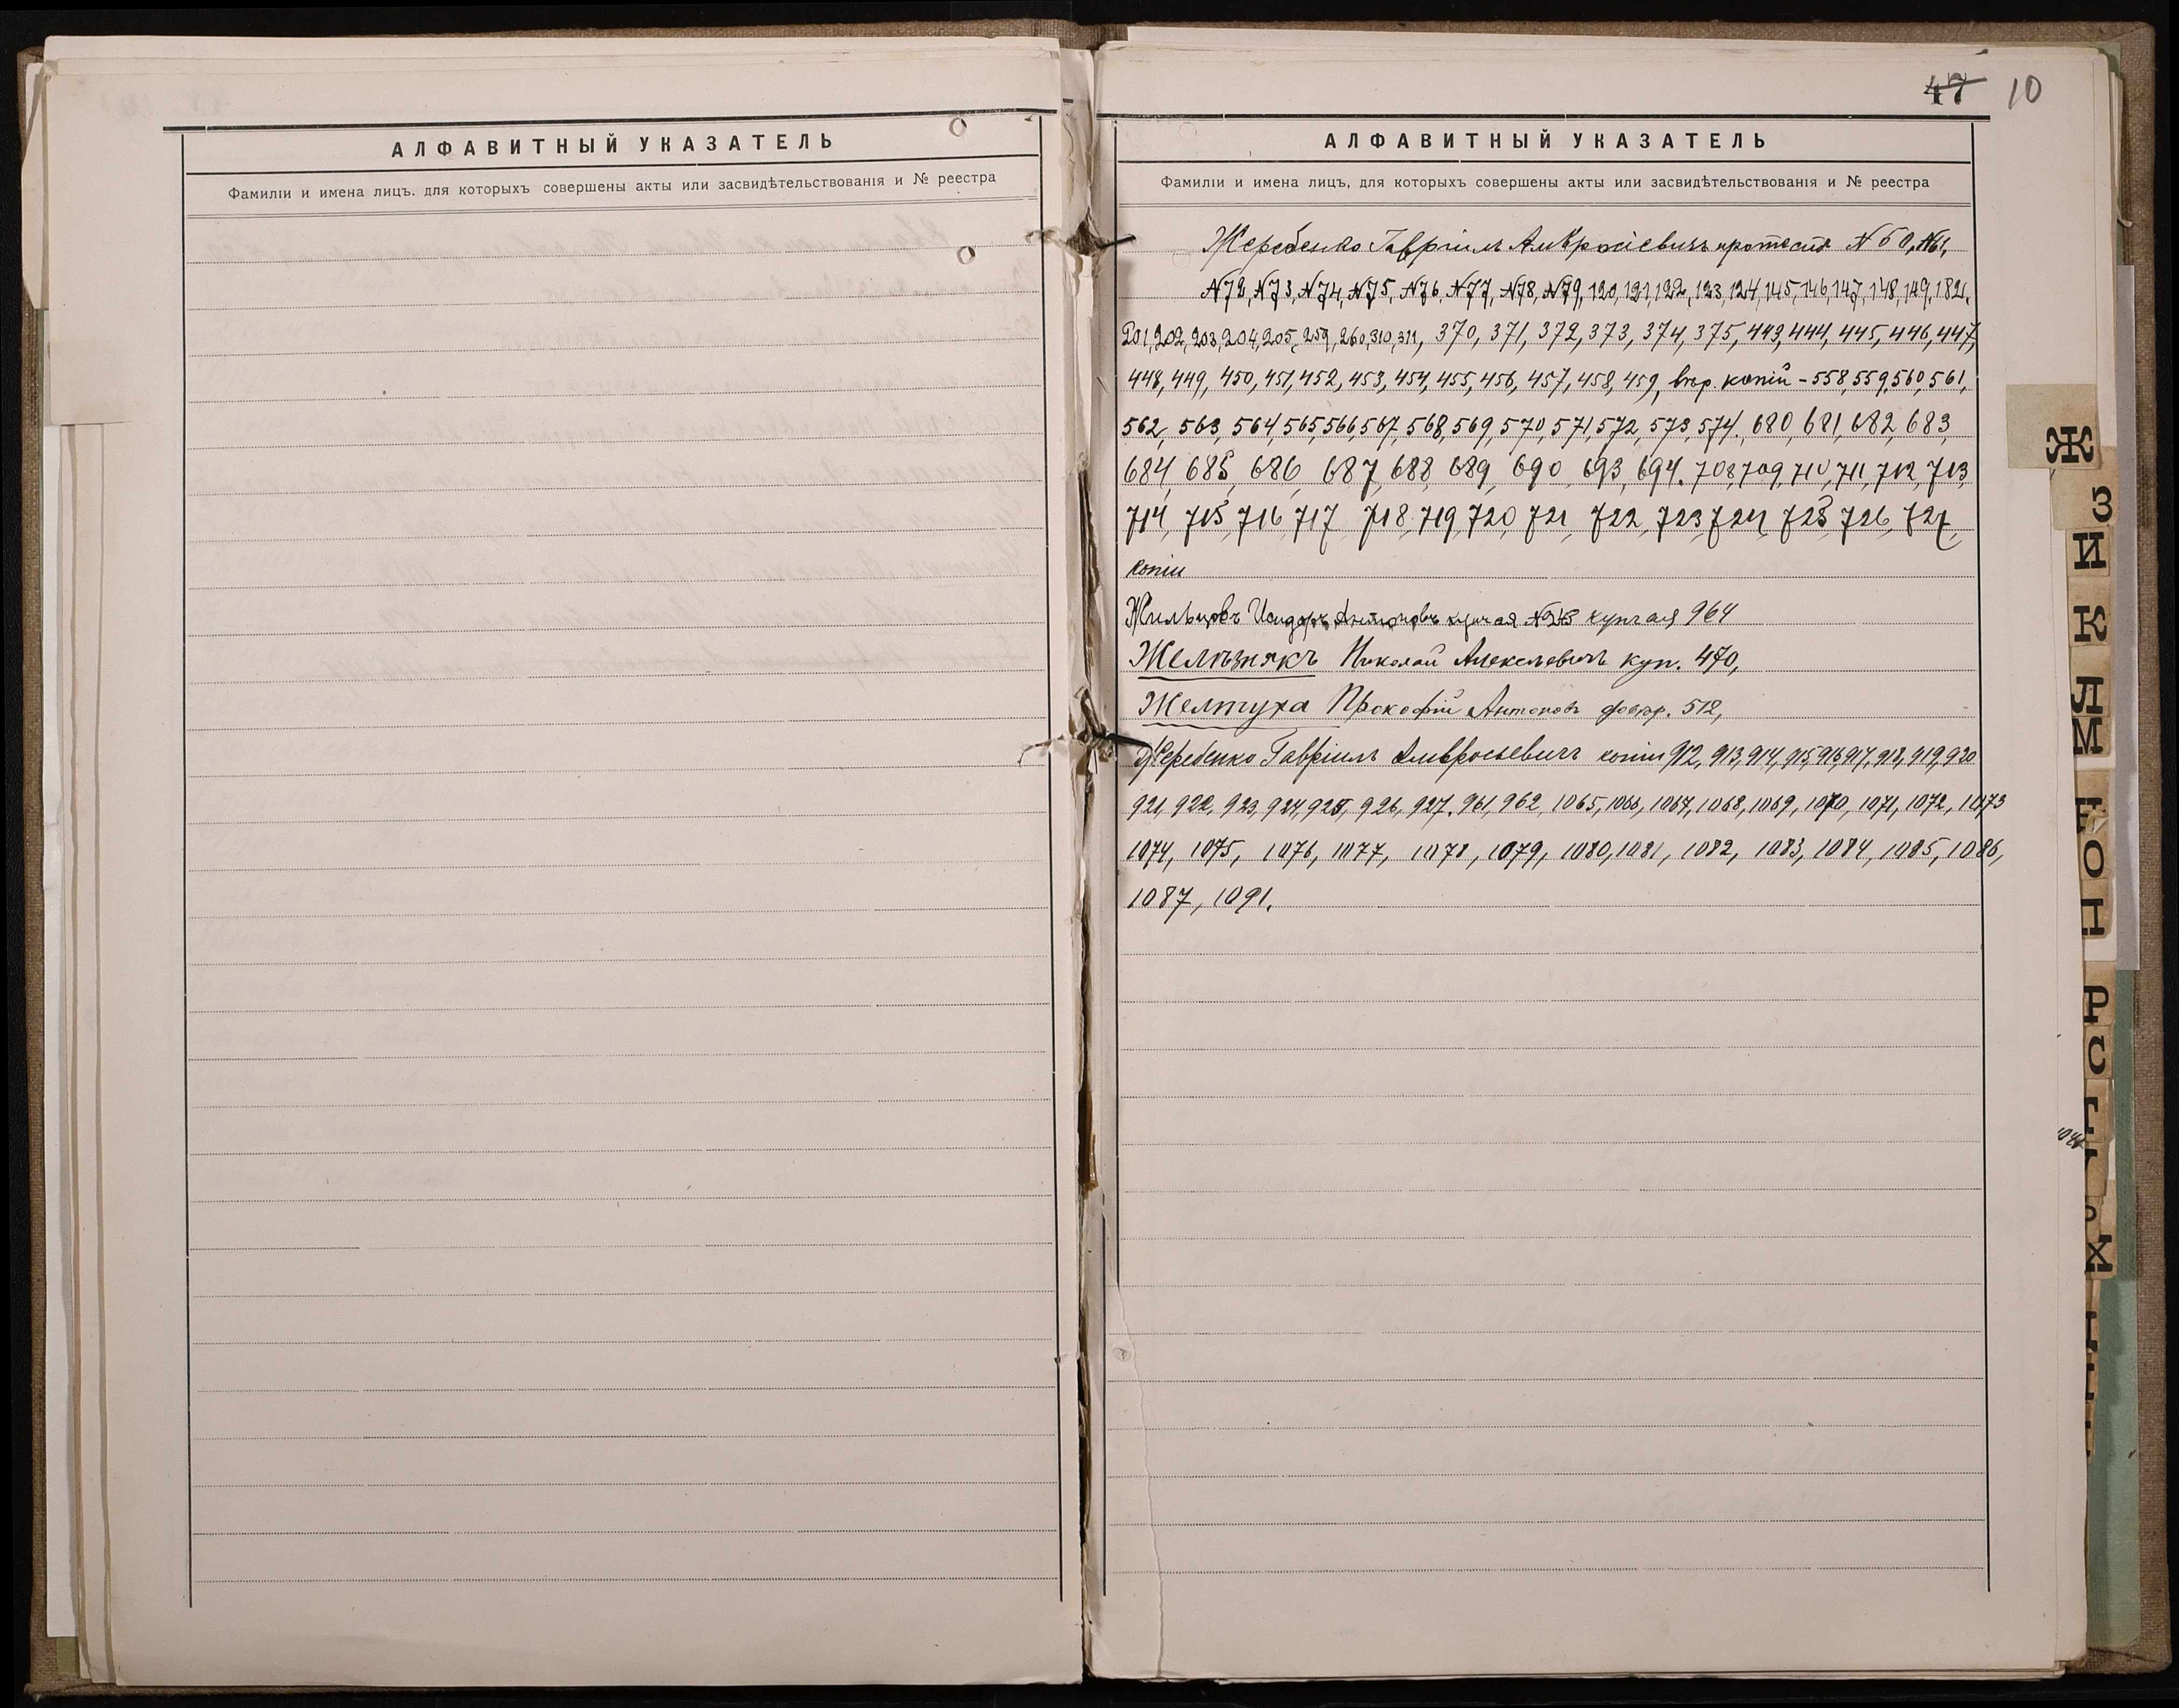 АЛФАВИТНЫЙ УКАЗАТЕЛЬ
Фамиліи и имена лицъ. для которыхъ совершены акты или засвидѣтельствованія и № реестра
47 10
АЛФАВИТНЫЙ УКАЗАТЕЛЬ
Фамиліи и имена лицъ, для которыхъ совершены акты или засвидѣтельствованія и № реестра
Жеребенко Гавріилъ Амвросіевичъ протестъ N 60, N61,
N72, N73, N74, N75, N76, N77, N78, N79, 120, 121, 122, 123, 124, 145, 146, 147, 148, 149, 182,
201, 202, 203, 204, 205, 259, 260, 310, 311, 370, 371, 372, 373, 374, 375, 443, 444, 445, 446, 447,
448, 449, 450, 451, 452, 453, 454, 455, 456, 457, 458, 459, вѣр. копій - 558, 559, 560, 561,
562, 563, 564, 565, 566, 567, 568, 569, 570, 571, 572, 573, 574. 680, 681, 682, 683,
684, 685, 686, 687, 688, 689, 690, 693, 694. 708, 709, 710, 711, 712, 713,
714, 715, 716, 717, 718, 719, 720, 721, 722, 723, 724, 725, 726, 727,
копіи
Жильцовъ Исидоръ Антоновъ купчая купчая 964
Желѣзнякъ Николай Алексѣевичъ куп. 470,
Желтуха Прокофій Антоновъ довѣр. 512,
Жеребенко Гавріилъ Амвросьевичъ копіи 912, 913, 914, 915, 916, 917, 918, 919, 920
921, 922, 923, 924, 925, 926, 927. 961, 962, 1065, 1066, 1067, 1068, 1069, 1070, 1071, 1072, 1073
1074, 1075, 1076, 1077, 1078, 1079, 1080, 1081, 1082, 1083, 1084, 1085, 1086,
1087, 1091.
Ж
З
И
К
Л
М
Н
О
П
Р
С
Т
У
Х